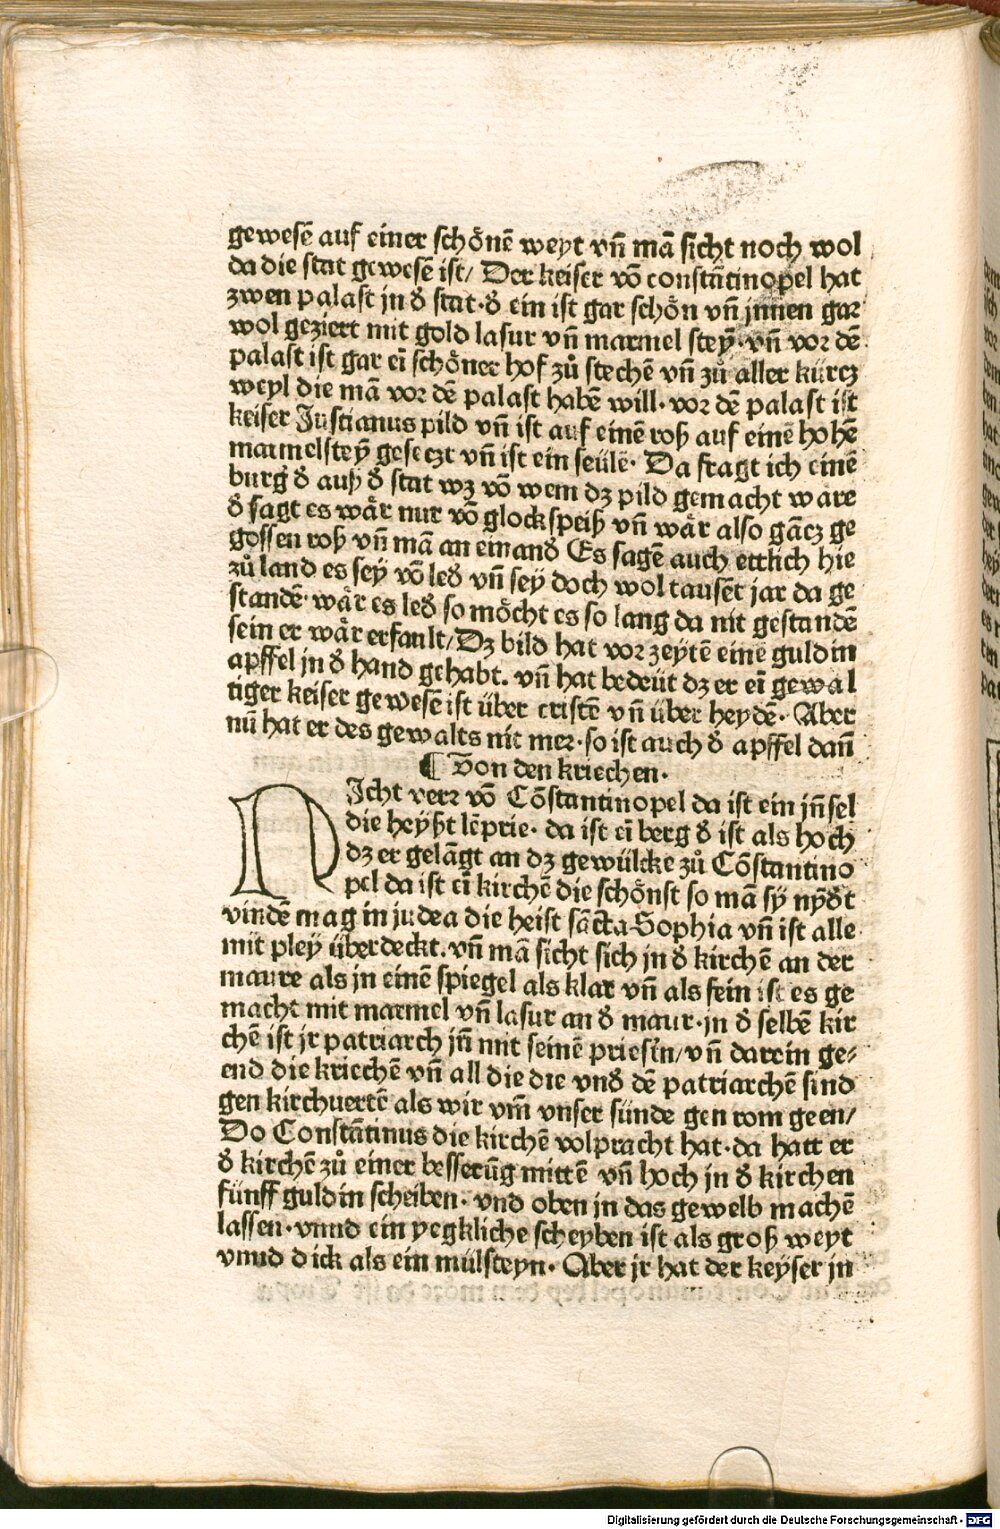 gewesē auf einer schönē weyt vn̄ mā sicht noch wol
da die stat gewesē ist/ Der keiser vō constātinopel hat
zwen palast jn d̕ stat·d̕ ein ist gar schön vn̄ jnnen gar
wol geziert mit gold lasur vn̄ marmel steȳ·vn̄ vor dē
palast ist gar eī schöner hof zů stechē vn̄ zů aller kürcz
weyl die mā vor dē palast habē will·vor dē palast ist
keiser Justianus pild vn̄ ist auf einē roß auf einē hohē
marmelsteȳ geseczt vn̄ ist ein seülē· Da fragt ich einē
burg̕ d̕ auß d̕ stat wz vō wem dz pild gemacht ware
d̕ sagt es wår nur vō glockspeiß vn̄ wår also gācz ge
gossen roß vn̄ mā an einand̕ Es sagē auch ettlich hie
zů land es sey vō led̕ vn̄ sey doch wol tausēt jar da ge
standē·wår es led̕ so möcht es so lang da nit gestandē
sein er wår erfault/Dz bild hat vor zeytē einē guldin
apffel jn d̕ hand gehabt. vn̄ hat bedeüt dz er eī gewal
tiger keiser gewesē ist über cristē vn̄ über heydē· Aber
nū hat er des gewalts nit mer·so ist auch d̕ apffel dan̄
¶ Von den kriechen·
NIcht verr vō Cōstantinopel da ist ein jn̄sel
die heyßt lēprie· da ist eī berg d̕ ist als hoch
dz er gelāgt an dz gewülcke zů Cōstantino
pel da ist eī kirchē die schönst so mā sy nyd̕t
vindē mag in judea die heist sācta·Sophia vn̄ ist alle
mit pley überdeckt. vn̄ mā sicht sich jn d̕ kirchē an der
maure als jn einē spiegel als klar vn̄ als fein ist es ge
macht mit marmel vn̄ lasur an d̕ maur·jn d̕ selbē kir
chē ist jr patriarch jn̄ mit seinē priestn̄/vn̄ darein ge⸗
end die kriechē vn̄ all die die vnd̕ dē patriarchē sind
gen kirchuertē als wir vm̄ vnser sünde gen rom geen/
Do Constātinus die kirchē volpracht hat·da hatt er
d̕ kirchē zů einer besserūg mittē vn̄ hoch jn d̕ kirchen
fünff guldin scheiben· vnd oben jn das gewelb machē
lassen·vnnd ein yegkliche scheyben ist als groß weyt
vnnd dick als ein mülsteyn· Aber jr hat der keyser jn
Digitalisierung gefördert durch die Deutsche Forschungsgemeinschaft - DFG